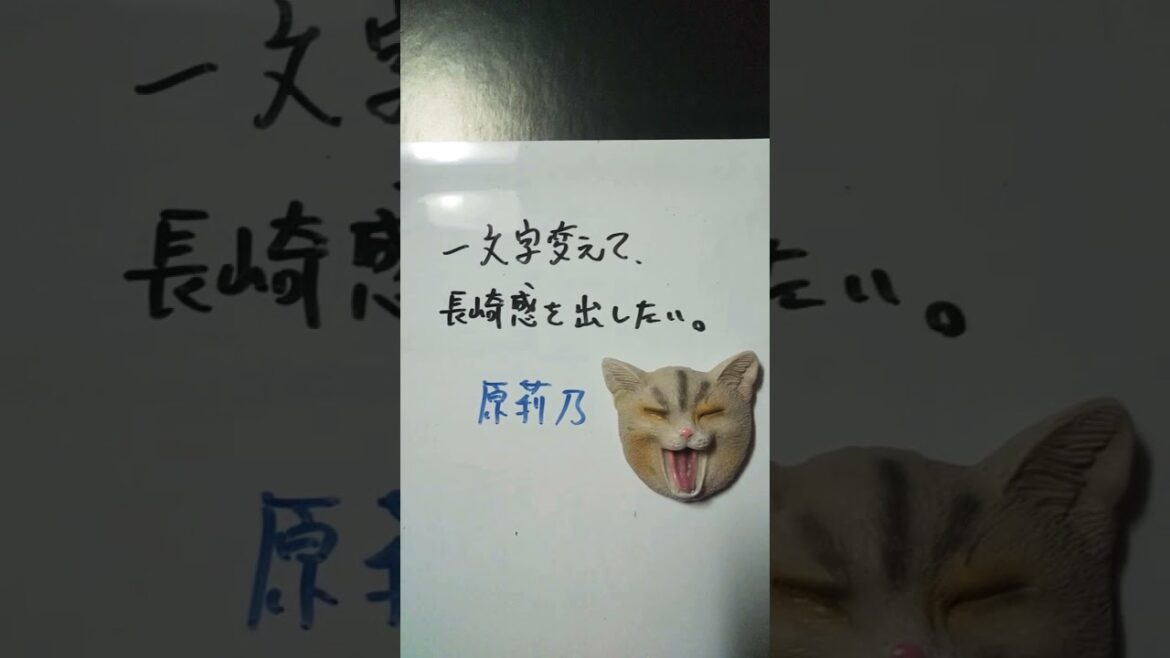 一文字変えて、
長崎感を出したい。
原莉乃